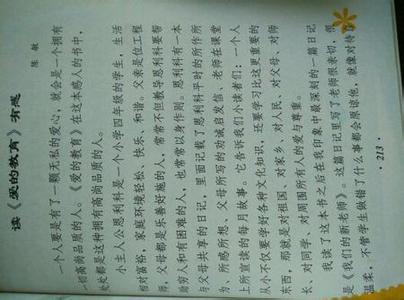 读《爱的教育》有感
陈 敏
一个人要是有了一颗无私的爱心，就会是一个拥有
一切高尚品质的人。《爱的教育》在这本感人的书中，
处处都是这种拥有高尚品质的人。
小主人公恩利科是一个小学四年级的学生，生活
相对富裕，家庭环境轻松、快乐、和谐。父亲是位工程
师，父母都是乐善好施的人，常常不但教导恩利科要帮
助穷人和有困难的人，也常常以身作则。恩利科有一本
与父母共享的日记，里面记载了恩利科平时的所作所
为、所感所想、父母所写的劝诫启发信、老师在课堂
上所宣读的每月故事。它告诉我们小读者们：一个人
从小不仅要学好各种文化知识，还要学习比这更重要的
东西，那就是对祖国、对家乡、对人民、对父母、对师
长、对同学、对周围所有人的爱与尊重。
我读了这本书之后在我印象中最深刻的一篇日记
是《我们的新老师》。这篇日记里写了老师很亲切、很
温柔，不管学生做错了什么事都会原谅他，就像对待
· 213 ·